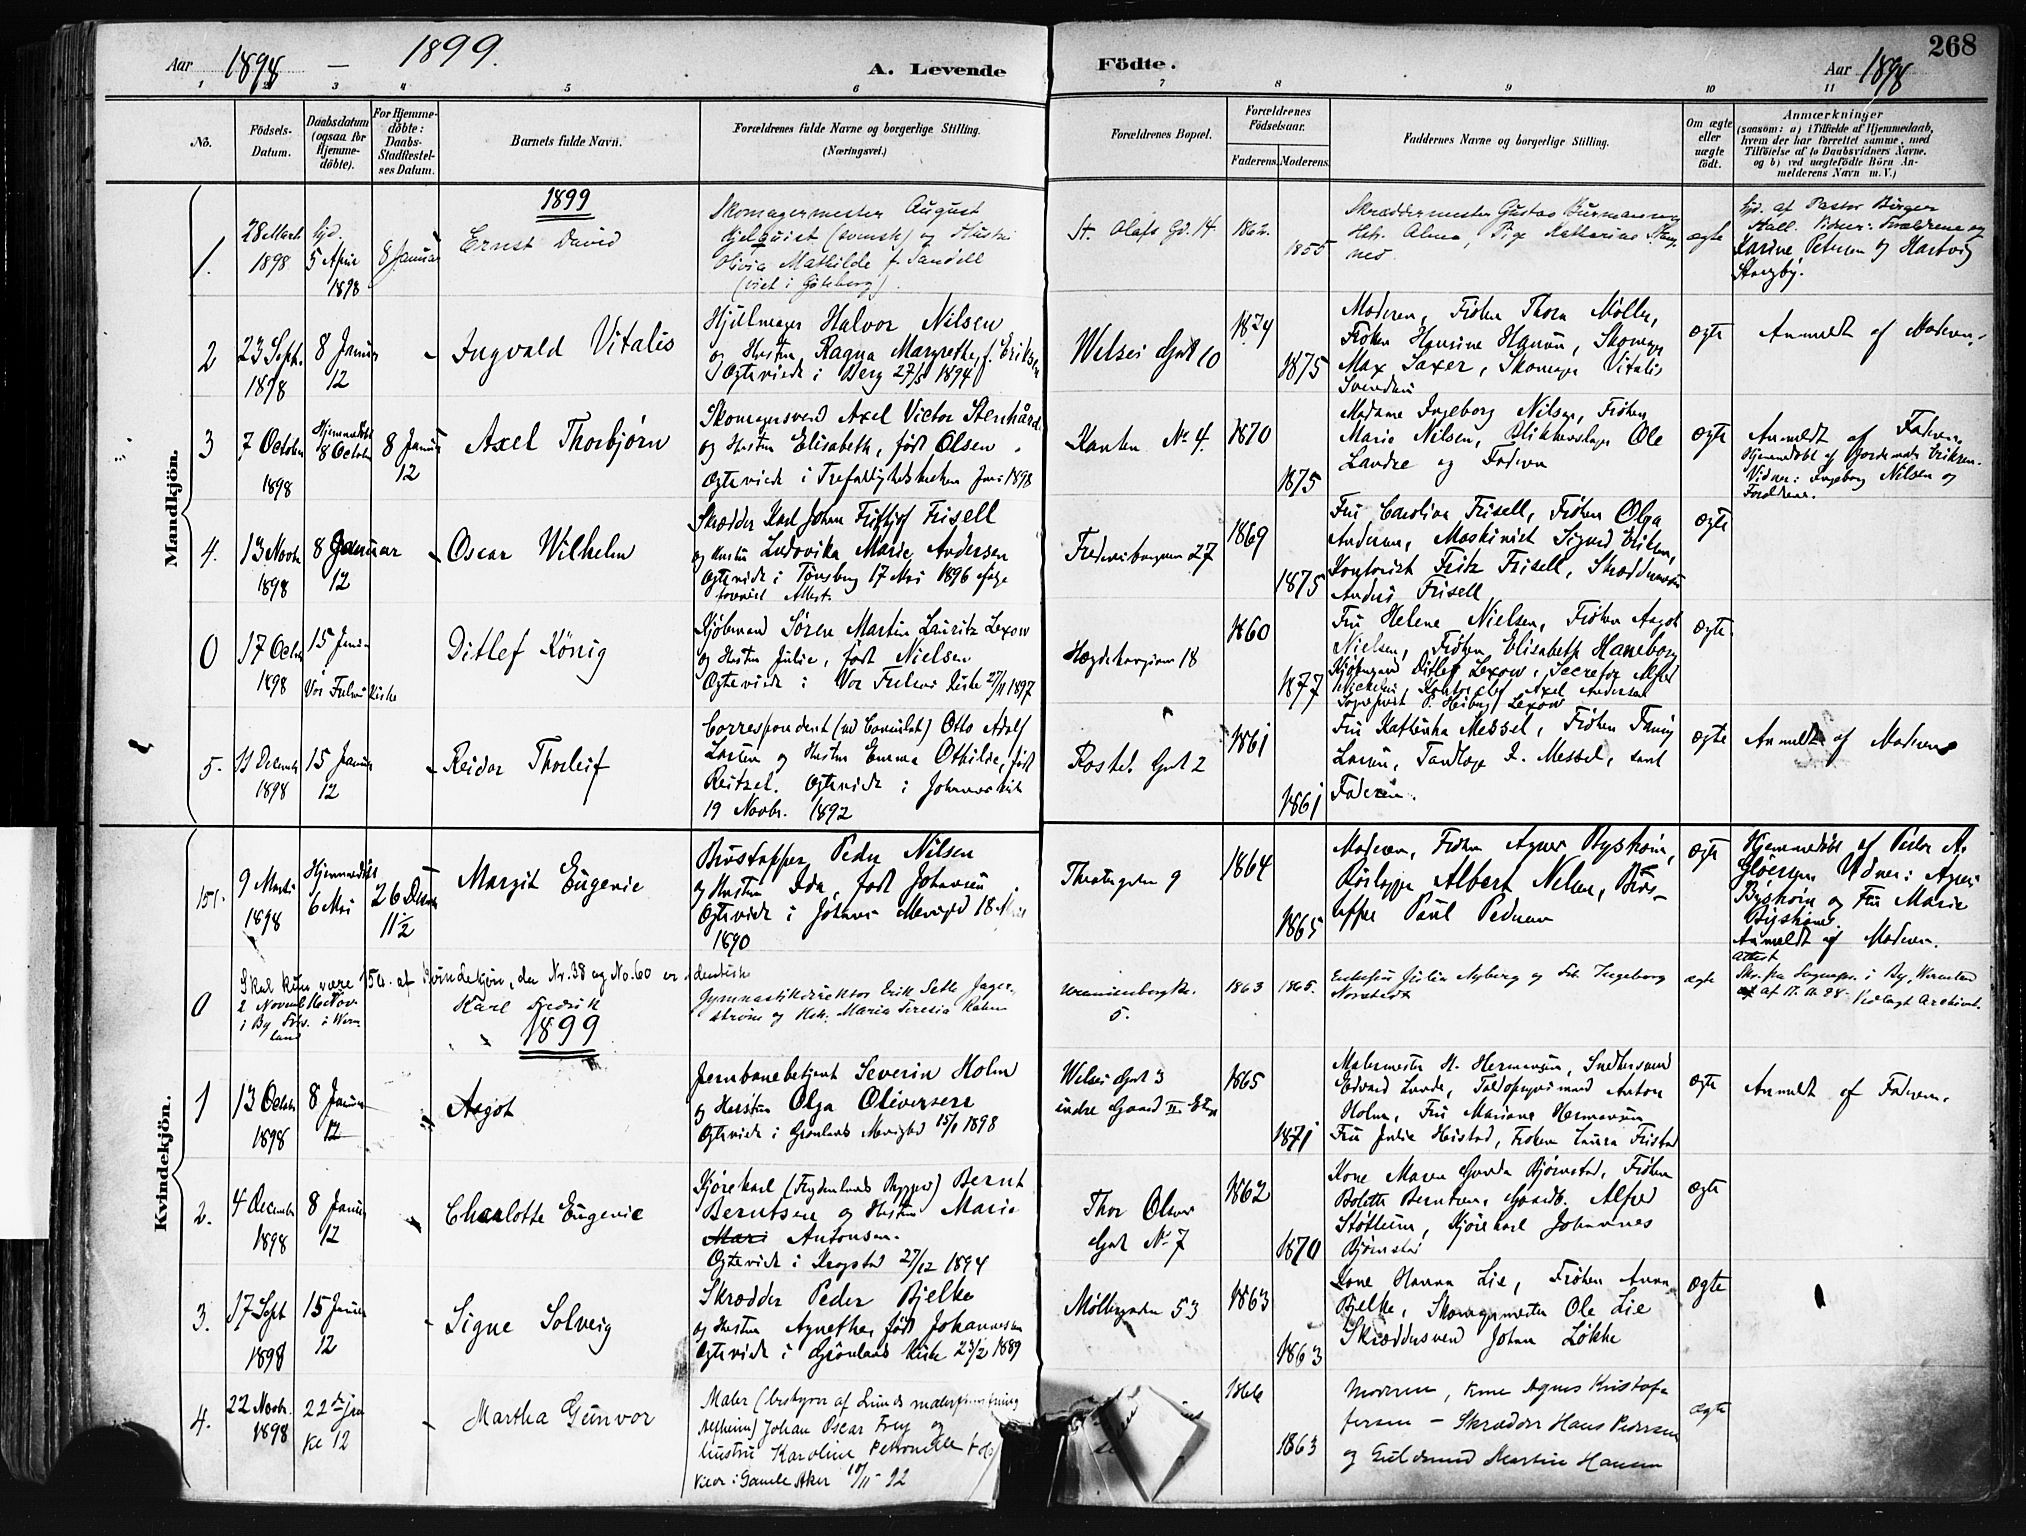 Aar 1898 — 1899.
A. Levende Födte.
Aar 1898
268
1 2 3 4 5 6 7 8 9 10 11
No.
Födsels-Datum.
Daabsdatum (ogsaa for Hjemme-döbte).
For Hjemme-döbte: Daabs-Stadfæstel-ses Datum.
Barnets fulde Navn.
Forældrenes fulde Navne og borgerlige Stilling.
(Næringsvei.)
Forældrenes Bopæl.
Forældrenes Födselsaar.
Faderens. Moderens.
Faddernes Navne og borgerlige Stilling.
Om ægte eller uægte født.
Anmærkninger
(saasom: a) i Tilfælde af Hjemmedaab, hvem der har forrettet samme, med Tilföielse af to Daabsvidners Navne. og b) ved uægtefödte Börn An-melderens Navn m. V.)
Mandkjön.
1899
1. 28 Marts 1898
5 April 1898
8 Januar
Ernst David
Skomagermester August
Kjelquist (svensk) og Hustru
Olivia Mathilde f. Sandell
(viet i Göteborg).
St. Olafs Gd. 14.
1862
1855
Skræddermester Gustav
Alma, Pige Katharine
ægte
af Pastor Birger
Hall. Vidner: Forældrene og
Karine Petersen og Hartvig
2 23 Septr. 1898
8 Januar 12
Ingvald Vitalis
Halvor Nilsen
og Hustru Ragna Margrethe f. Eriksen
Ægteviede i Berg 27/5 1894
10
1874
1875
Moderen, Frøken Thora Møller,
Frøken Hansine Hansen, Skomager
Max Saxer, Skomager Vitalis
Svendsen
ægte
Anmeldt af Moderen.
3 7 October 1898
Hjemmedøbt 8 October
8 Januar 12
Axel Thorbjørn
Skomagersvend Axel Victor Stenhård
og Hustru Elisabeth, født Olsen
Ægteviede i Trefoldighedskirken 1898
No 4.
1870
1875
Madame Ingeborg Nilsen, Frøken
Marie Nilsen, Blikkenslager Ole
og Faderen
ægte
Anmeldt af Faderen.
Hjemmedøbt af Jordemoder Eriksen.
Vidner: Ingeborg Nilsen og
Forældrene.
4. 13 Novbr 1898
8 Januar 12
Oscar Wilhelm
Skrædder Karl Johan Fritjof Frisell
og Hustru Ludovika Marie Andersen
Ægteviede i Tønsberg 17 Mai 1896 ifølge
forevist Attest.
27
1869
1875
Fru Carolina Frisell, Frøken Olga
Andersen, Maskinist Sigurd Eriksen,
Kontorist Fritz Frisell, Skræddersvend
Anders Frisell
ægte
0 17 Octbr 1898
15 Januar
Vor Frelsers Kirke
Ditlef König
Kjøbmand Sören Martin Lauritz Lexow
og Hustru Julie, født Nielsen
Ægteviede i Vor Frelsers Kirke 27/11 1897
Hægdehaugsveien 18
1860
1877
Fru Helene Nielsen, Frøken Aagot
Nielsen, Frøken Elisabeth Haneborg
Kjøbmand Ditlef Lexow, Secretær Alfred
Axel Andersen
Sogneprest P. Heiberg Lexow
ægte
5. 11 December 1898
15 Januar 12
Reidar Thorleif
Correspondent (ved Consulat) Otto Adolf
Larsen og Hustru Emma Othilde, født
Reitzel. Ægteviede i Johannes Kirke
19 Novbr. 1892
Gade 2
1861
1861
Fru Kathinka Messel, Frøken Fanny
Larsen, Tandlæge I. Messel, samt
Faderen.
ægte
Anmeldt af Moderen
Kvindekjön.
151. 9 Marts 1898
Hjemmedøbt 6 Mai
26 Decbr 11½
Margit Eugenie
Peder Nilsen
og Hustru Ida, født Johansen
Ægteviede i Johannes Menighed 18 Mai
1890
Theatergaden 9
1864
1865
Moderen, Frøken Agnes Byskoin,
Albert Nelsen,
Paul Pedersen
ægte
Hjemmedøbt af Pastor A.
Gløersen Vidner: Agnes
og Fru Marie
Anmeldt af Moderen.
Skal kun være 150. af Kvindekjøn, da Nr. 38 og No. 60 er identiske
0 2 Novemb. 16 Nov.
i By, Förs. i Werm-
land
Karl Fredrik
Gymnastikdirektør Erik Sette Jager-
ström og Hstr. Maria Teresia
5.
1863
1865.
Julia Nyberg og Frk. Ingeborg
Norstedt
ægte
Attest
fra Sognepr. i By, Wermland
af 17. 11. 98. Vedlagt Archivet.
1899
1 13 Octbr 1898
8 Januar 12
Aagot
Jernbanebetjent Severin Holm
og Hustru Olga Oliversen
Ægteviede i Grønlands Menighed 15/1 1898
3
indre Gaard II Etage
1865
1871
Malermester H. Hermansen, Snedkersvend
Edvard Lunde, Anton
Holm, Fru Mariane Hermansen
Fru Julie Heistad, Frøken Laura
ægte
Anmeldt af Faderen.
2. 4 December 1898
8 Januar 12
Charlotte Eugenie
Kjørekarl (Frydenlunds Bryggeri) Bernt
Berntsen og Hustru Marie
Mari Antonsen.
Ægteviede i Krogstad 27/12 1894
Thor Olsens
Gade No 7
1862
1870
Kone Maren Gurda Bjørnstad, Frøken
Bolette Berntsen, Gaardb. Alfred
Kjørekarl Johannes
Bjørnstad
ægte
3. 17 Sept 1898
15 Januar 12
Signe Solveig
Skrædder Peder Bjelke
og Hustru Agnethe, født Johannesen
Ægteviede i Grønlands Kirke 23/2 1889
Møllergaden 53
1863
1863
Kone Hanna Lie, Frøken Anna
Bjelke, Skomagermester Ole Lie
Skræddersvend Johan Løkke
ægte
4. 22 Novbr. 1898
22de Jan
Kl 12
Martha Gunvor
Maler (bestyrer af Lunds malerforretning
Johan Oscar Frey og
hustru Karoline Petronelle
Viede i Gamle Aker 10/11 - 92
1866
1863
Moderen, Kone Agnes Kristof-
fersen — Skrædder Hans Pedersen
og Guldsmed Martin Hansen
ægte